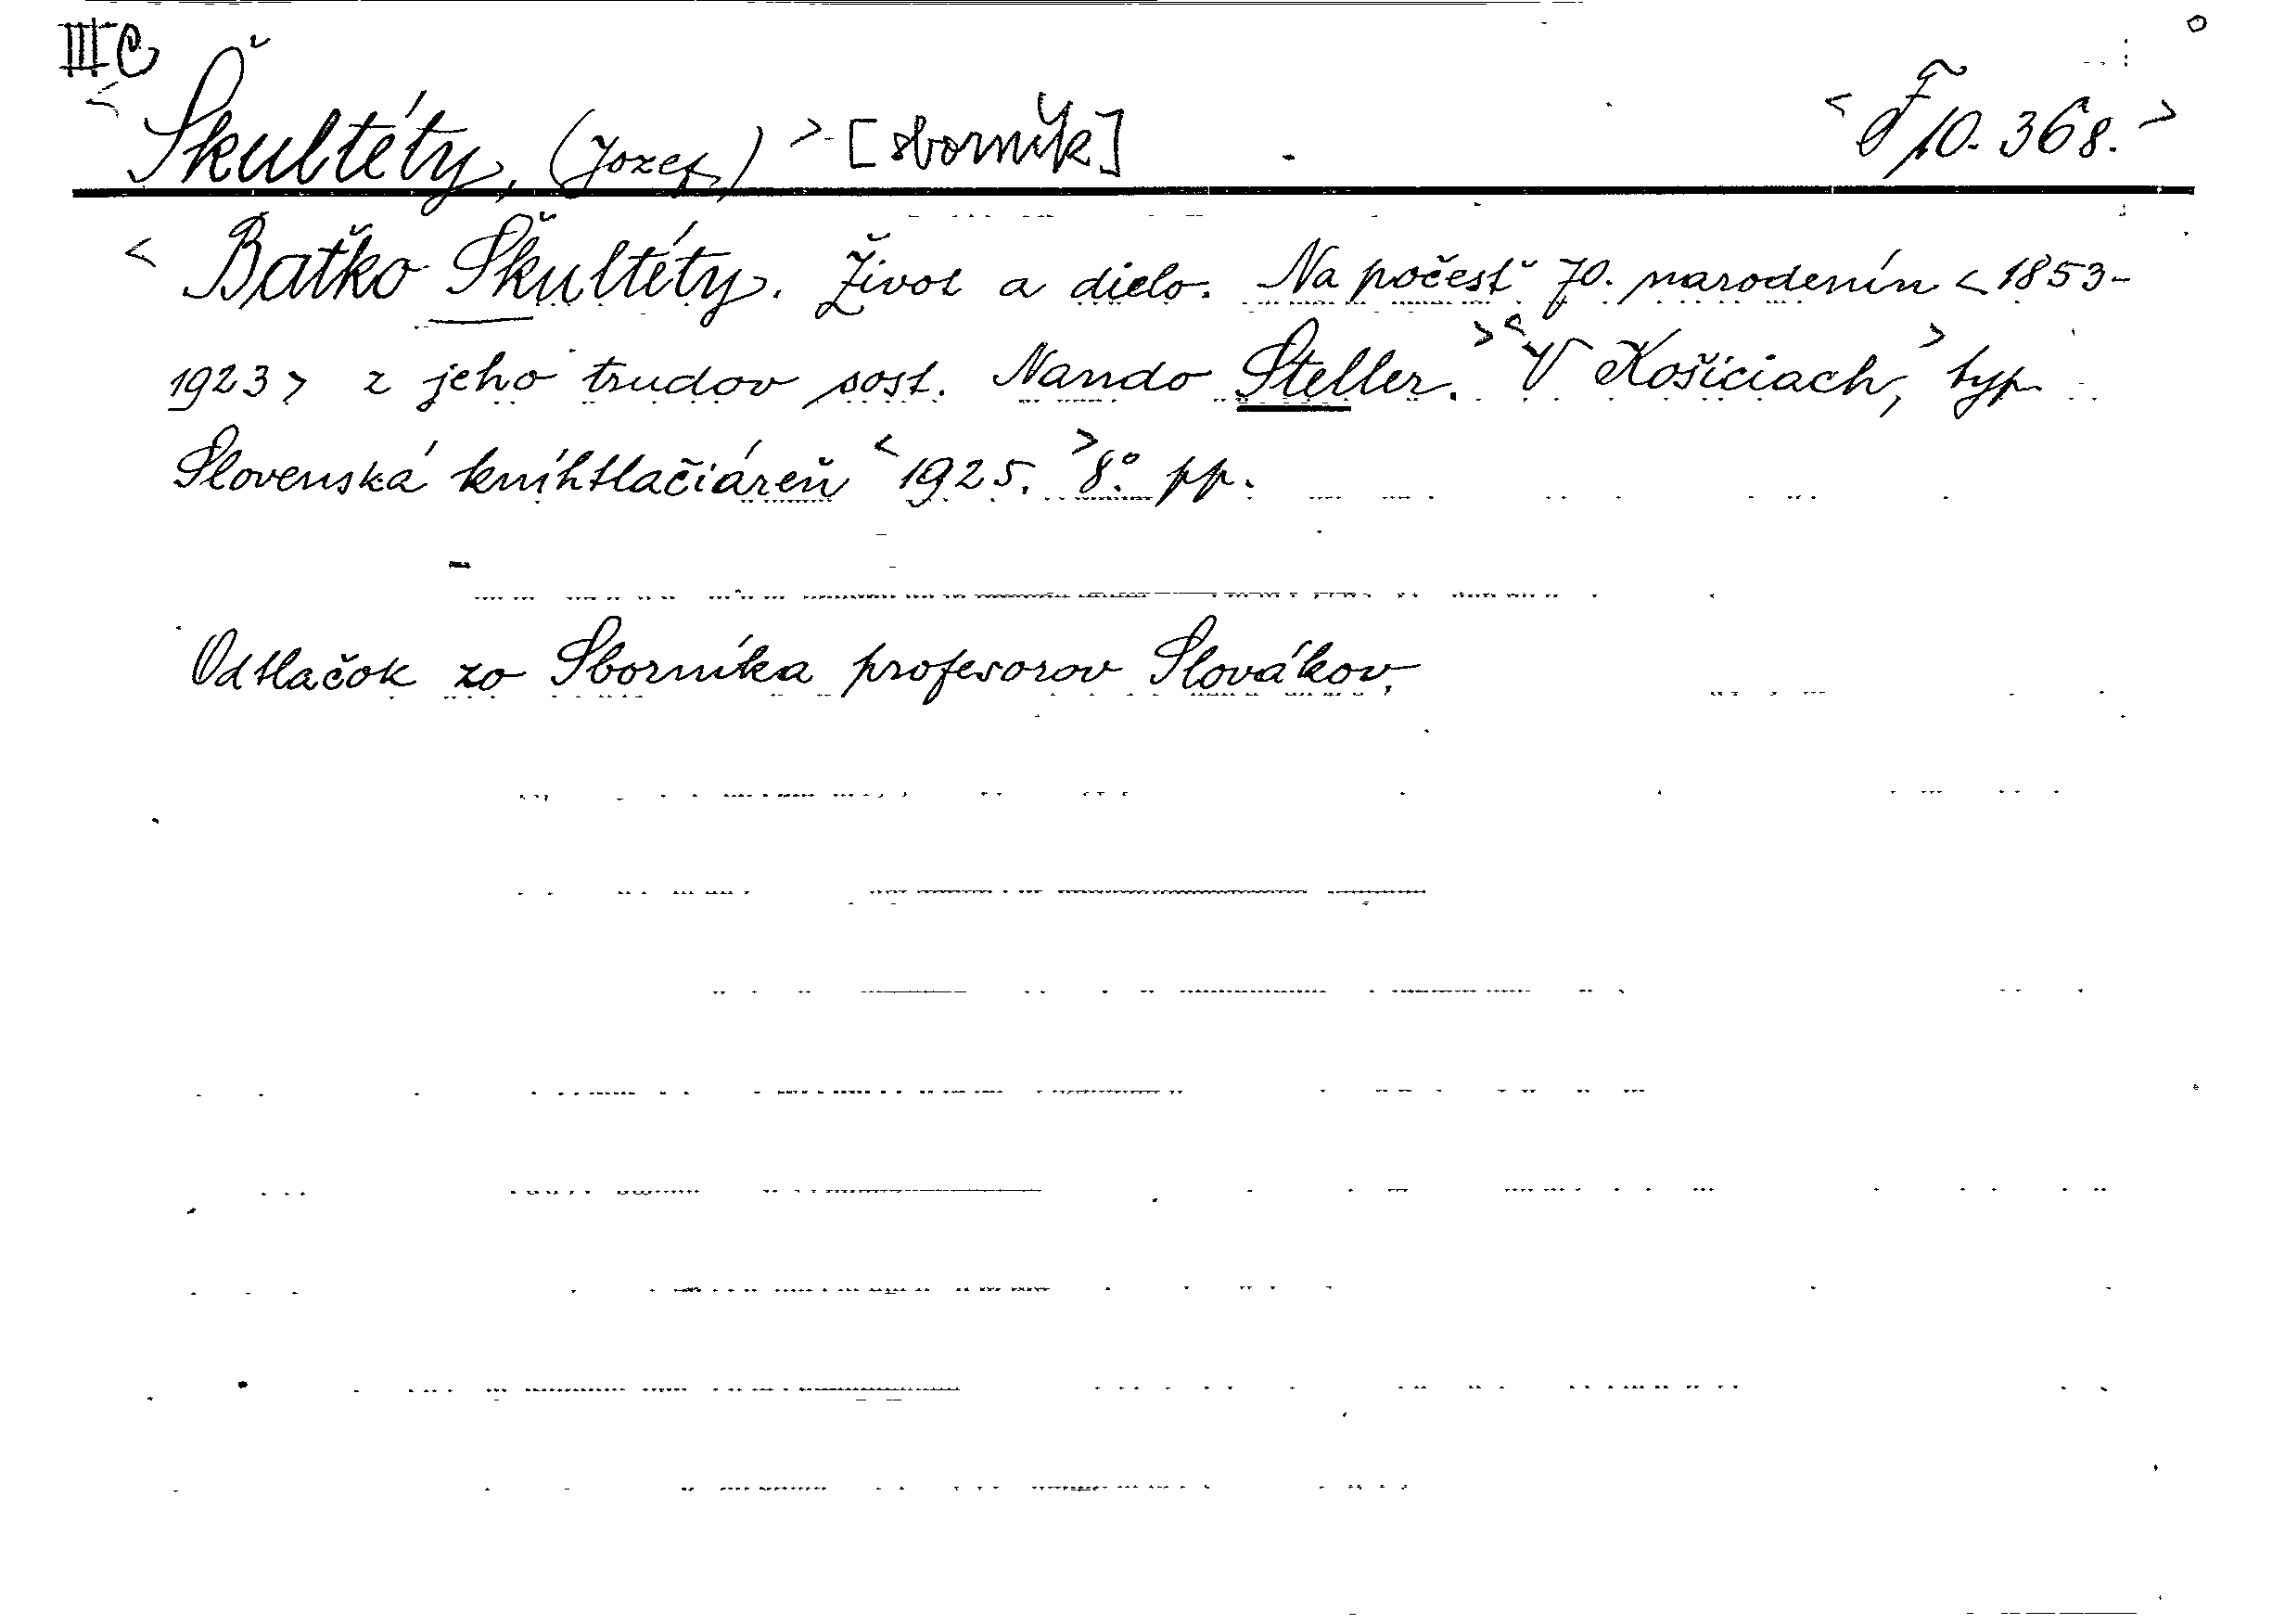 III C
< Škultéty, (Jozef) > [sborník] < F 10.368. >
< Baťko Škultéty. Život a dielo. Na počesť 70. narodenín < 1853-
1923 > z jeho trudov sost. Nando Šteller. > < V Košiciach, > typ.
Slovenská kníhtlačiáreň < 1925. > 8.° pp.
Odtlačok zo Sborníka profesorov Slovákov.